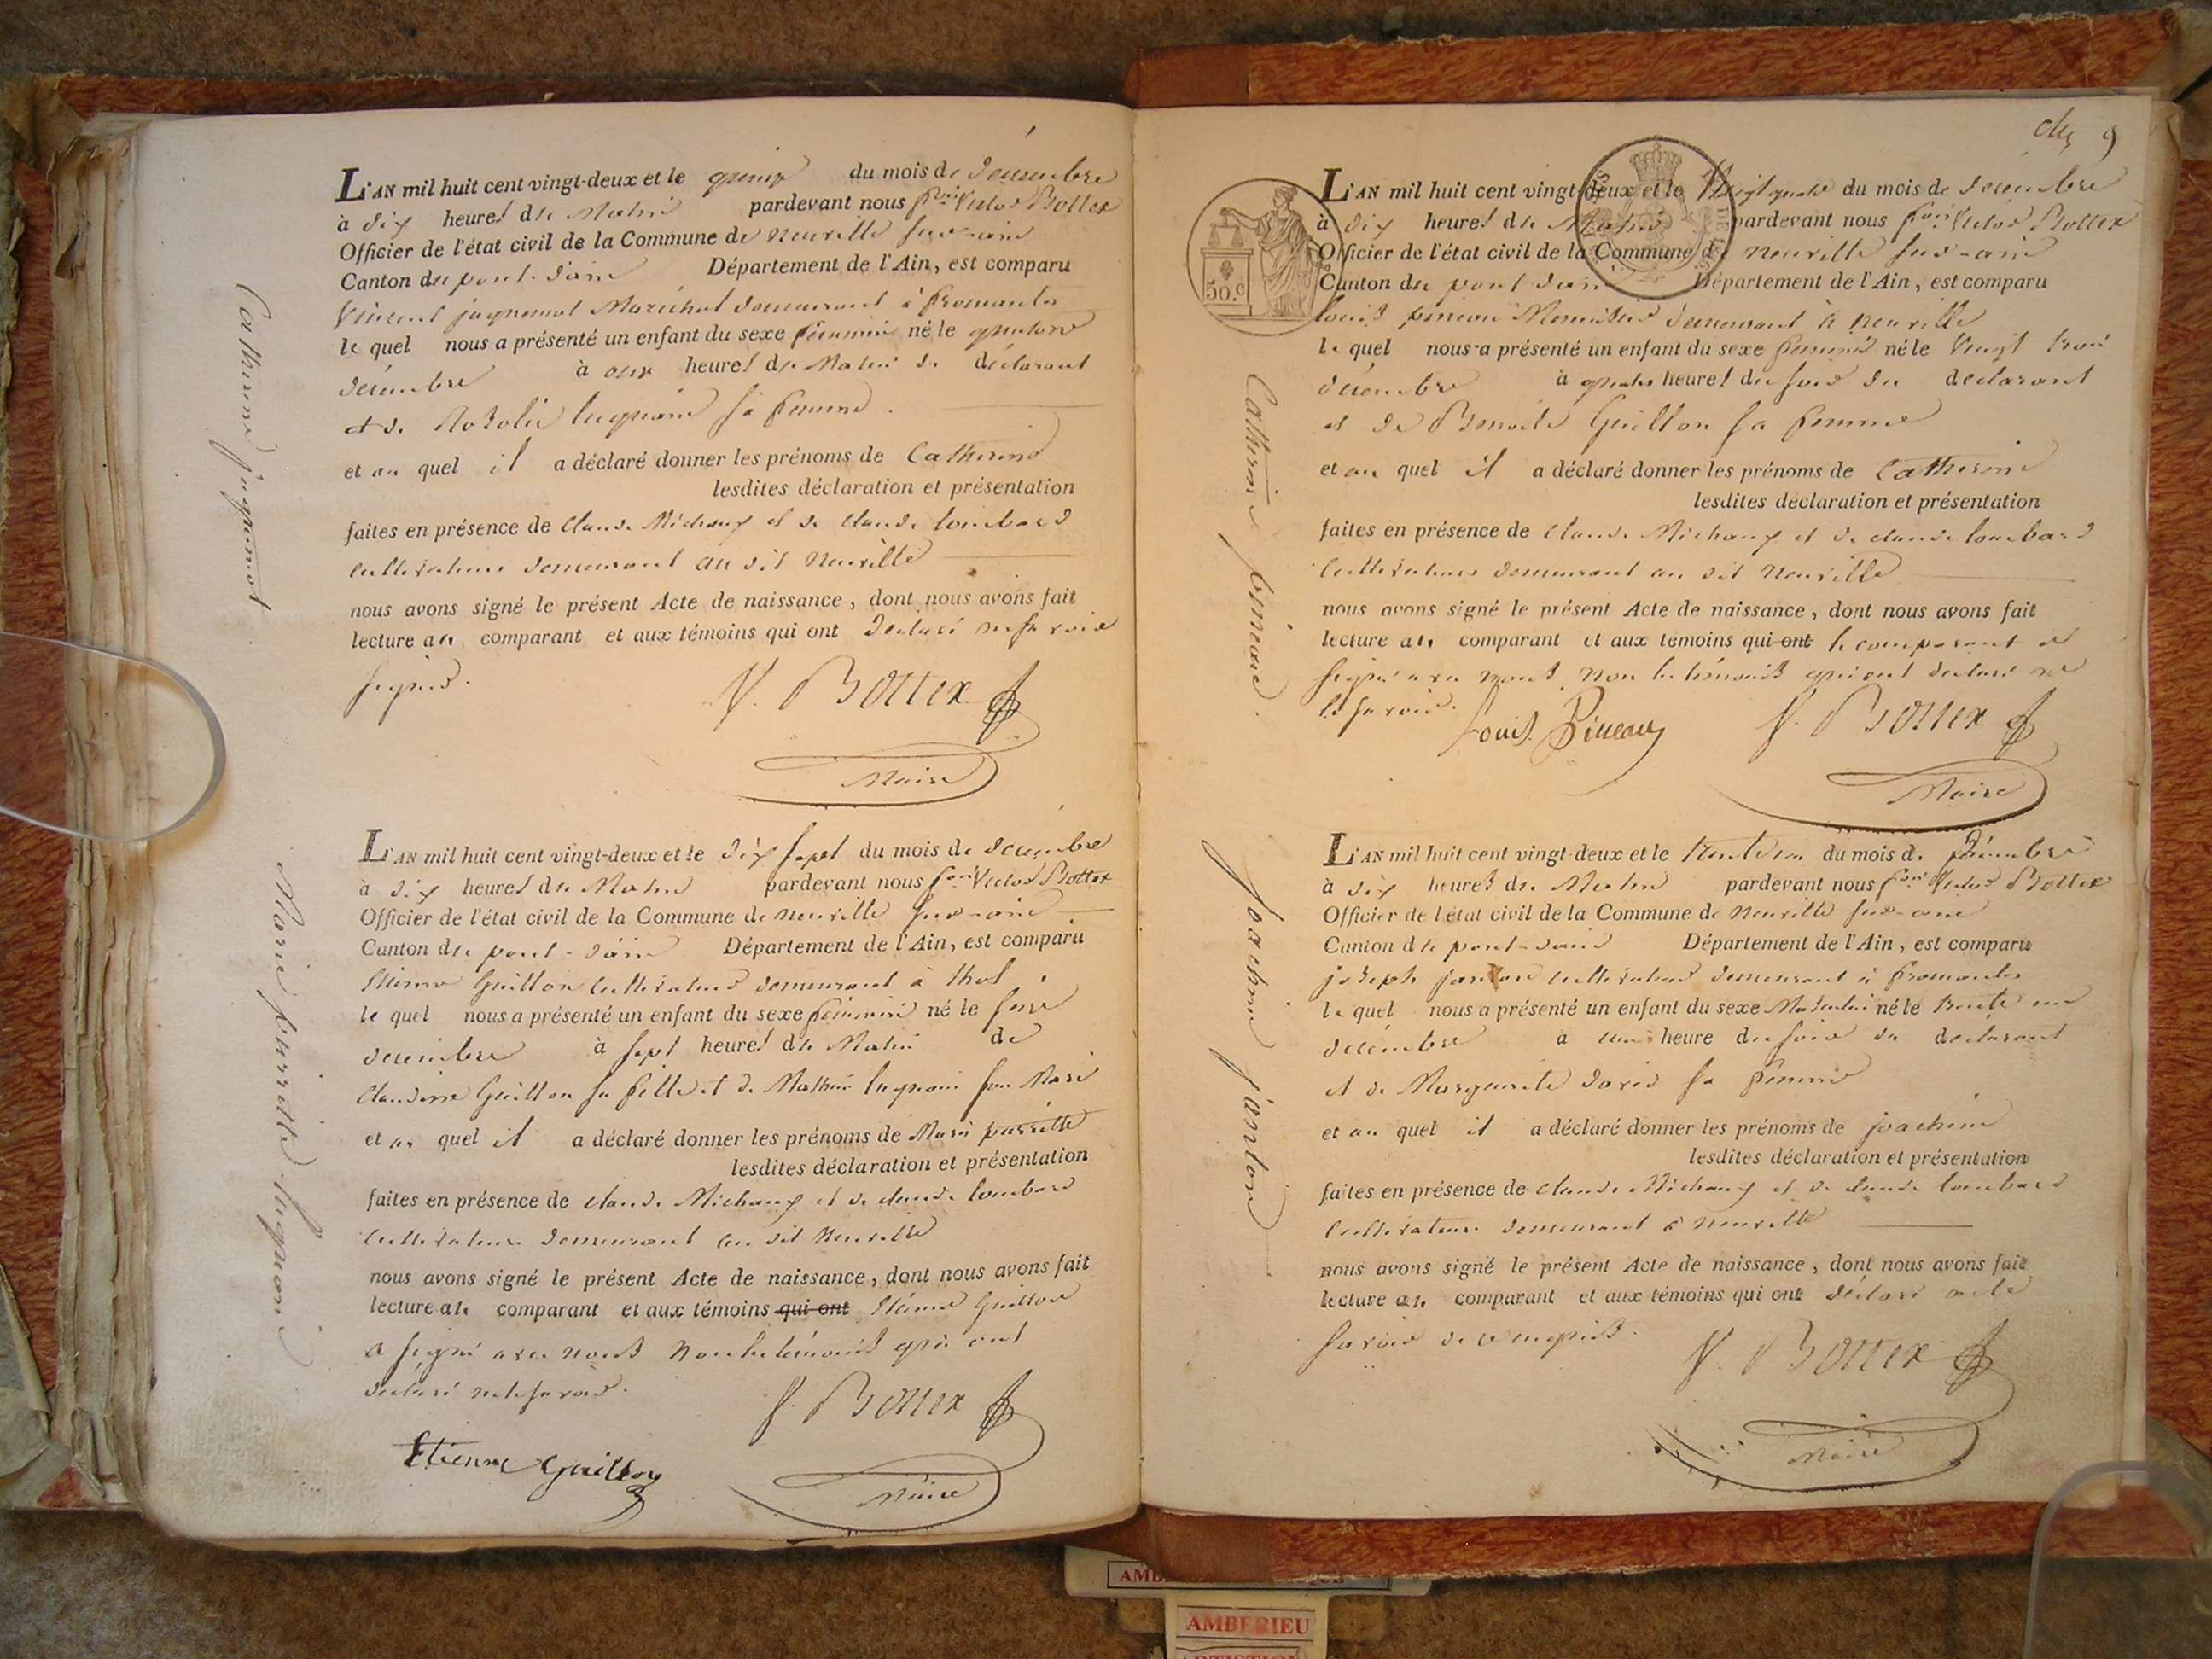 L'AN mil huit cent vingt-deux et le quinze du mois de décembre
à dix heures du Matin pardevant nous Victor Bottex
Officier de l'état civil de la Commune de neuville sur-ain
Canton du pont-d'ain Département de l'Ain, est comparu
Vincent juquenot Maréchal demeurant à fromentes
le quel nous a présenté un enfant du sexe féminin né le quatorze
décembre à onze heures du Matin du déclarant
et de Rosalie luquain sa femme
et au quel il a déclaré donner les prénoms de Catherine
lesdites déclaration et présentation
faites en présence de claude Michaux et de claude lombard
cultivateurs demeurant au dit neuville
nous avons signé le présent Acte de naissance, dont nous avons fait
lecture au comparant et aux témoins qui ont déclaré ne savoir
signer.
V. Bottex
Maire
L'AN mil huit cent vingt-deux et le dix sept du mois de décembre
à dix heures du Matin pardevant nous Victor Bottex
Officier de l'état civil de la Commune de neuville sur-ain
Canton du pont-d'ain Département de l'Ain, est comparu
Etienne Guillon cultivateur demeurant à thol
le quel nous a présenté un enfant du sexe féminin né le seize
décembre à sept heures du Matin de
claudine Guillon sa fille et de Mathieu luquain son Mari
et au quel il a déclaré donner les prénoms de Marie pierrette
lesdites déclaration et présentation
faites en présence de claude Michaux et de claude lombard
cultivateurs demeurant au dit neuville
nous avons signé le présent Acte de naissance, dont nous avons fait
lecture au comparant et aux témoins qui ont Etienne Guillon
a signé avec nous non les témoins qui ont
déclaré ne le savoir.
V. Bottex
Etienne Guillon
Maire
Catherine juquenot
Marie pierrette luquain
L'AN mil huit cent vingt-deux et le Vingt quatre du mois de décembre
à dix heures du Matin pardevant nous Victor Bottex
Officier de l'état civil de la Commune de neuville sur-ain
Canton du pont d'ain Département de l'Ain, est comparu
50.c
louis pineau Menuisier demeurant à neuville
le quel nous a présenté un enfant du sexe féminin né le Vingt trois
décembre à quatre heures du soir du déclarant
et de Benoite Guillon sa femme
et au quel il a déclaré donner les prénoms de Catherine
lesdites déclaration et présentation
faites en présence de claude Michaux et de claude lombard
cultivateurs demeurant au dit neuville
nous avons signé le présent Acte de naissance, dont nous avons fait
lecture au comparant et aux témoins qui ont le comparant a
signé avec nous non les témoins qui ont déclaré ne
le savoir.
Louis Pineau
V. Bottex
Maire
L'AN mil huit cent vingt-deux et le trente un du mois de Décembre
à dix heures du Matin pardevant nous Victor Bottex
Officier de l'état civil de la Commune de neuville sur-ain
Canton du pont-d'ain Département de l'Ain, est comparu
joseph janton cultivateur demeurant à fromentes
le quel nous a présenté un enfant du sexe Masculin né le trente un
décembre à une heure du soir du déclarant
et de Marguerite david sa femme
et au quel il a déclaré donner les prénoms de joachim
lesdites déclaration et présentation
faites en présence de claude Michaux et de claude lombard
cultivateurs demeurant à neuville
nous avons signé le présent Acte de naissance, dont nous avons fait
lecture au comparant et aux témoins qui ont déclaré ne le
savoir de ce enquis.
V. Bottex
Maire
Catherine pineau.
joachim janton
AMBERIEU